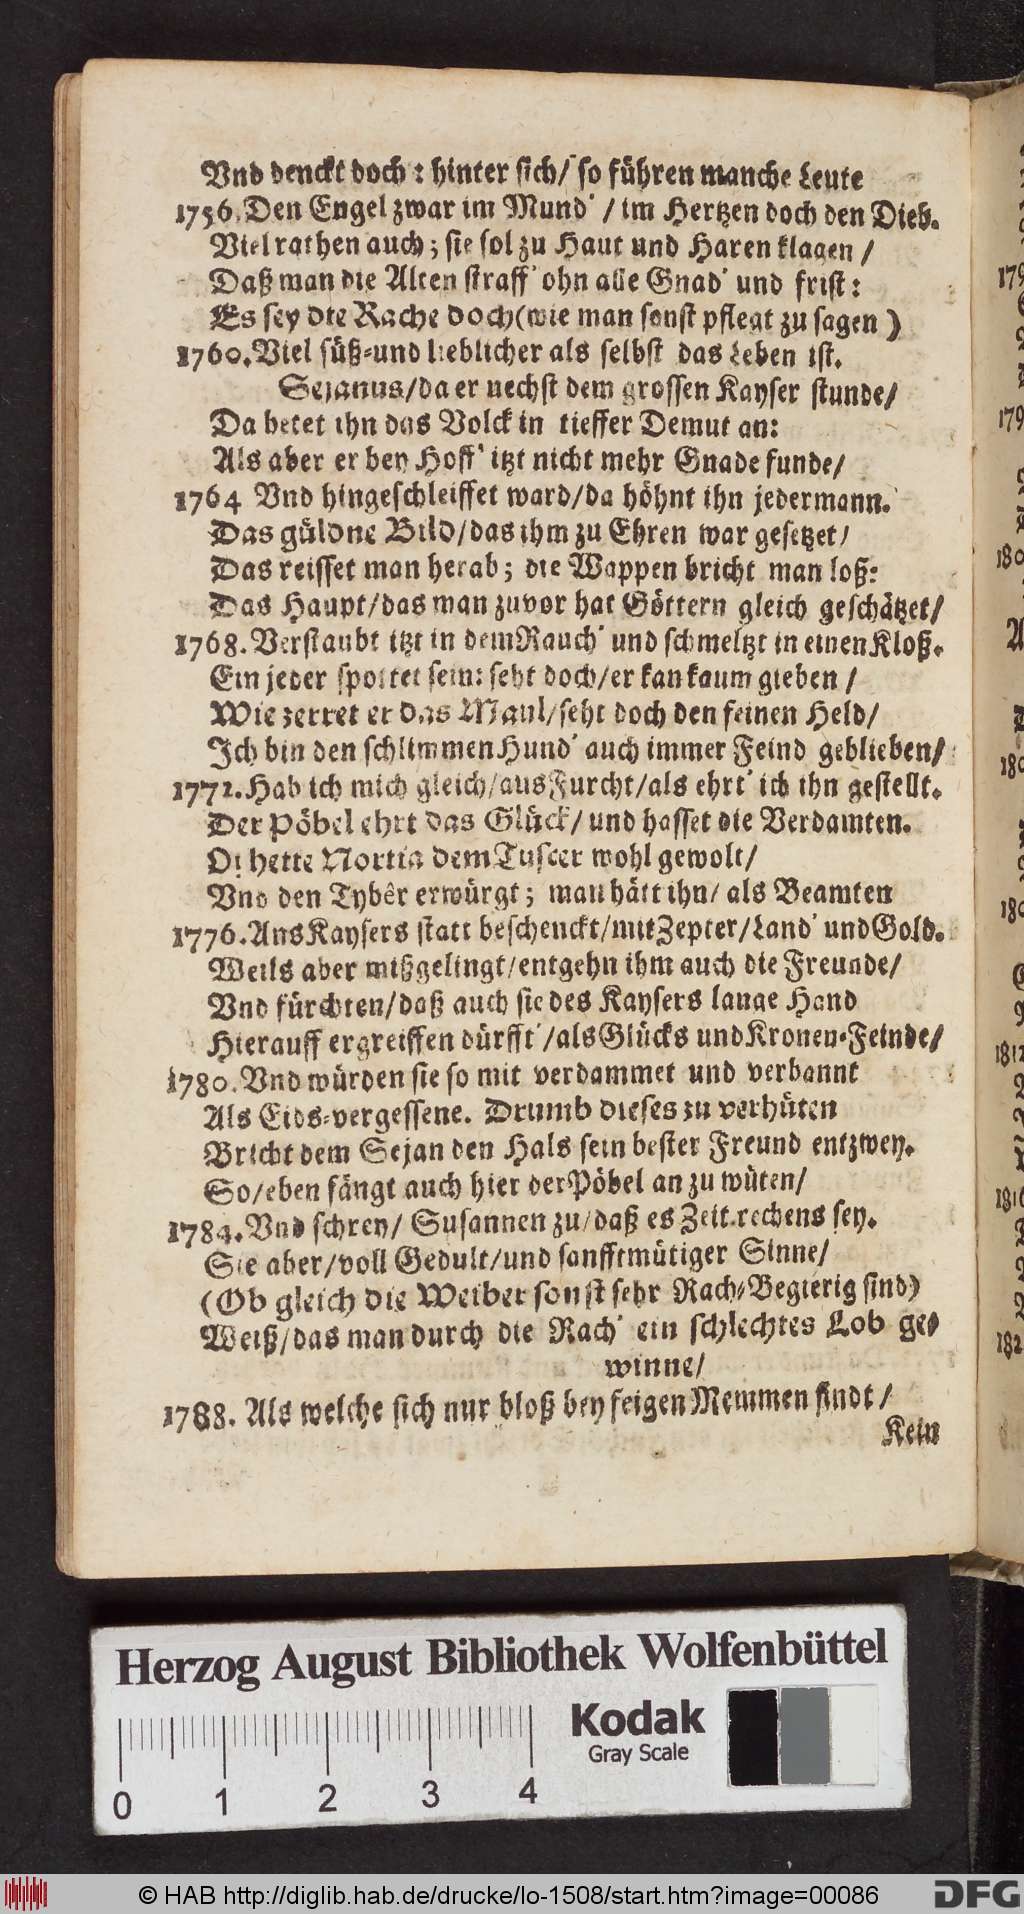 Vnd denckt doch: hinter sich/ so führen manche Leute
1756. Den Engel zwar im Mund' / im Hertzen doch den Dieb.
Viel rathen auch; sie sol zu Haut und Haren klagen /
Daß man die Alten straff' ohn alle Gnad' und frist:
Es sey die Rache doch (wie man sonst pflegt zu sagen)
1760. Viel süß-und lieblicher als selbst das Leben ist.
Sejanus/ da er nechst dem grossen Kayser stunde/
Da betet ihn das Volck in tieffer Demut an:
Als aber er bey Hoff' itzt nicht mehr Gnade funde/
1764 Vnd hingeschleiffet ward/ da höhnt ihn jedermann.
Das güldne Bild/ das ihm zu Ehren war gesetzet/
Das reisset man herab; die Wappen bricht man loß:
Das Haupt/ das man zuvor hat Göttern gleich geschätzet/
1768. Verstaubt itzt in dem Rauch' und schmeltzt in einen Kloß.
Ein jeder spottet sein: seht doch/ er kan kaum gieben /
Wie zerret er das Maul/ seht doch den feinen Held/
Ich bin den schlimmen Hund' auch immer Feind geblieben/
1772. Hab ich mich gleich/ aus Furcht/ als ehrt' ich ihn gestellt.
Der Pöbel ehrt das Glück/ und hasset die Verdamten.
O! hette Nortia dem Tuscer wohl gewolt/
Vnd den Tybêr erwürgt; man hätt ihn/ als Beamten
1776. Ans Kaysers statt beschenckt/ mit Zepter/ Land' und Gold.
Weils aber mißgelingt/ entgehn ihm auch die Freunde/
Vnd fürchten/ daß auch sie des Kaysers lange Hand
Hierauff ergreiffen dürfft'/ als Glücks und Kronen-Feinde/
1780. Vnd würden sie so mit verdammet und verbannt
Als Eids-vergessene. Drumb dieses zu verhüten
Bricht dem Sejan den Hals sein bester Freund entzwey.
So/ eben fängt auch hier der Pöbel an zu wüten/
1784. Vnd schrey/ Susannen zu/ daß es Zeit rechens sey.
Sie aber/ voll Gedult/ und sanfftmütiger Sinne/
(Ob gleich die Weiber sonst sehr Rach-Begierig sind)
Weiß/ das man durch die Rach' ein schlechtes Lob ge-
winne/
1788. Als welche sich nur bloß bey feigen Memmen findt/
Kein
Herzog August Bibliothek Wolfenbüttel
Kodak
Gray Scale
0 1 2 3 4
© HAB http://diglib.hab.de/drucke/lo-1508/start.htm?image=00086
DFG